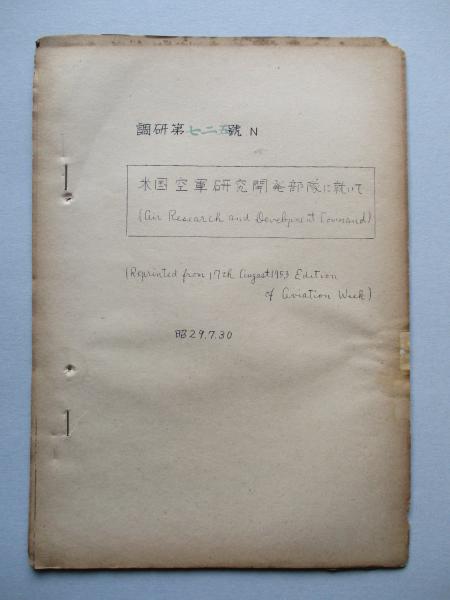 調研第七二五號 N
米国空軍研究開発部隊に就いて
(Air Research and Development Command)
(Reprinted from 17th August 1953 Edition
of Aviation Week)
昭29.7.30